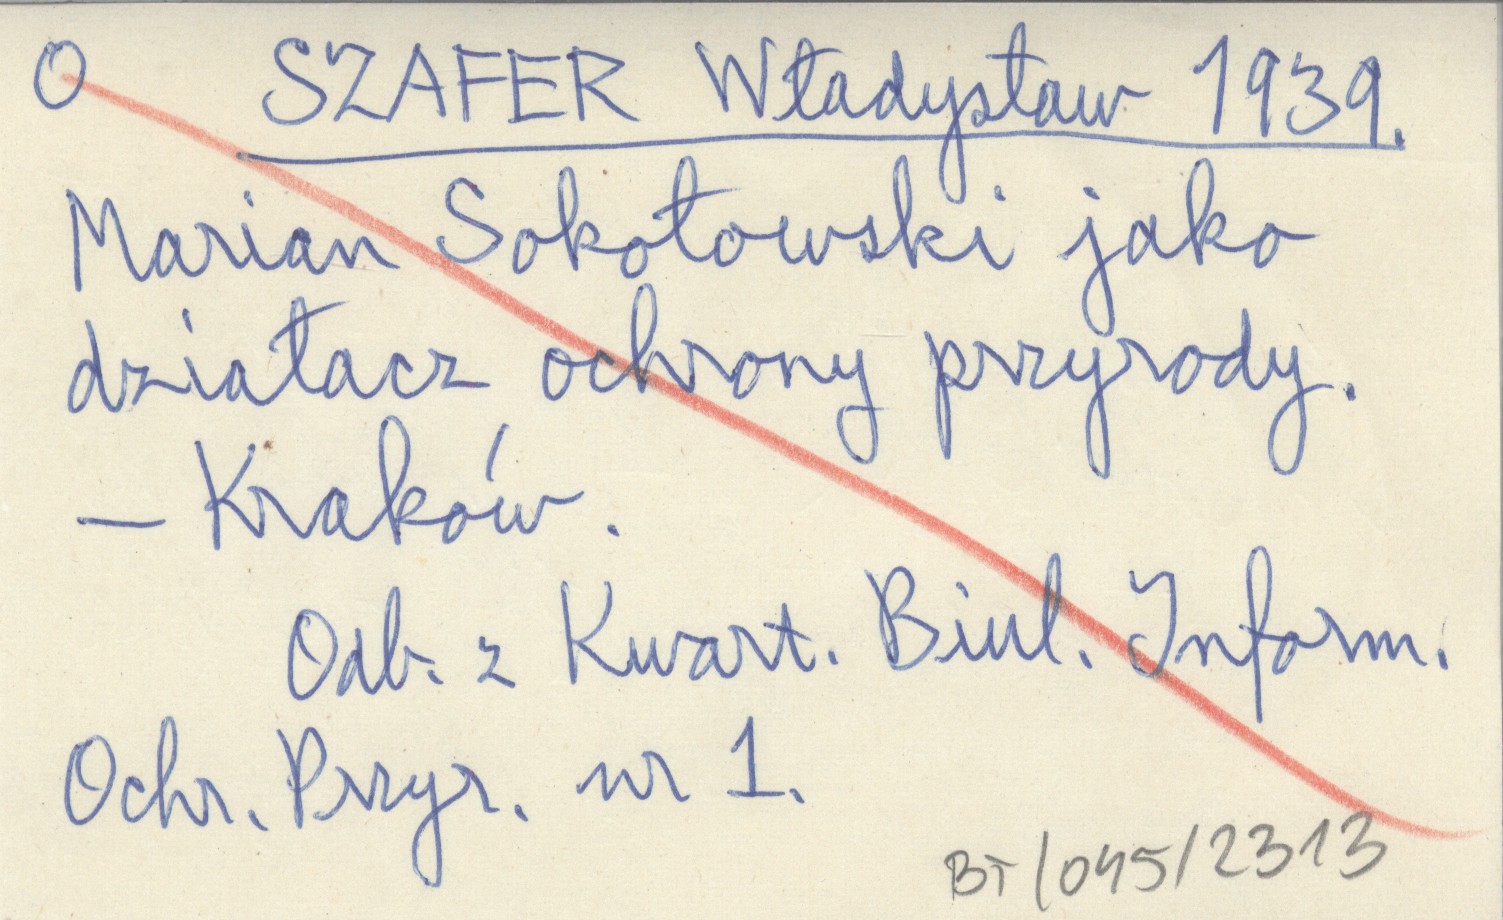 O SZAFER Władysław 1939.
Marian Sokołowski jako
działacz ochrony przyrody.
— Kraków.
Odb. z Kwart. Biul. Inform.
Ochr. Przyr. nr 1.
BT/045/2313